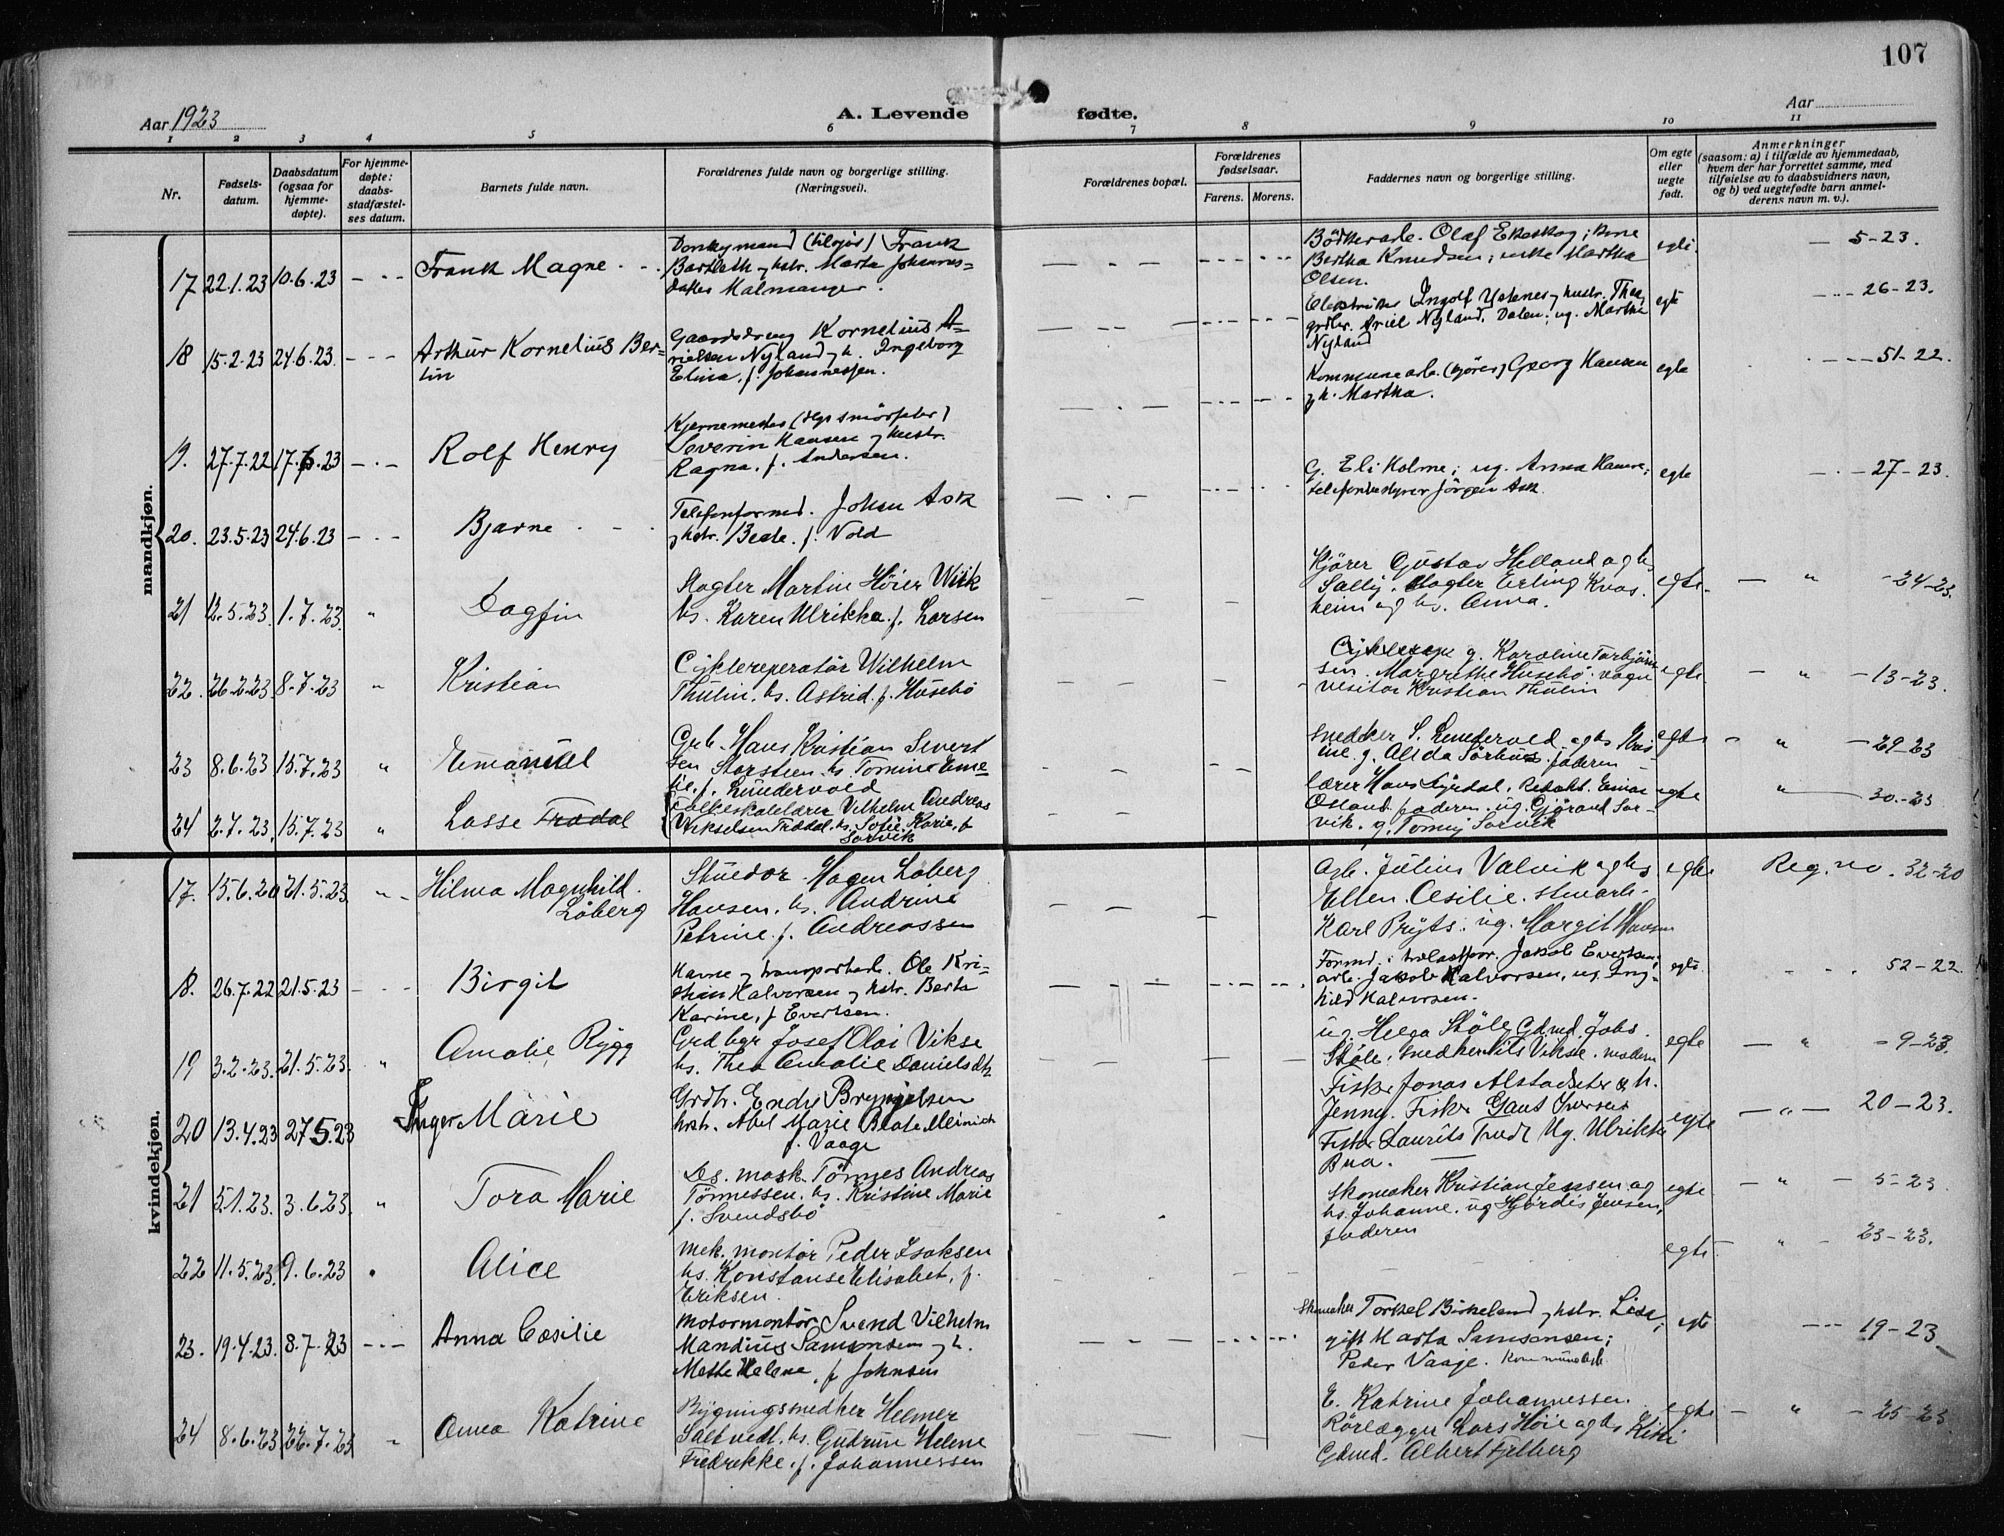 107
Aar 1923
A. Levende fødte.
Aar
1 2 3 4 5 6 7 8 9 10 11
Nr.
Fødsels-
datum.
Daabsdatum
(ogsaa for
hjemme-
døpte).
For hjemme-
døpte:
daabs-
stadfæstel-
ses datum.
Barnets fulde navn.
Forældrenes fulde navn og borgerlige stilling.
(Næringsvei).
Forældrenes bopæl.
Forældrenes
fødselsaar.
Farens. Morens.
Faddernes navn og borgerlige stilling.
Om egte
eller
uegte
født.
Anmerkninger
(saasom: a) i tilfælde av hjemmedaab,
hvem der har forrettet samme, med
tilføielse av to daabsvidners navn,
og b) ved uegtefødte barn anmel-
derens navn m. v.).
mandkjøn.
17 22.1.23 10.6.23 Frank Magne
Donkymand (tilsjøs) Frank
Bartleth og hstr. Marta Johannes-
datter Malmanger.
Bödkerarb. Olaf Ekeskog; kone
Bertha Knudsen; enke Martha
Olsen.
egte 5-23.
18 15.2.23 24.6.23 Arthur Kornelius Ber-
tin
Gaardsdreng Kornelius A-
rielsen Nyland og h. Ingeborg
Elina, f. Johannessen.
Elektriker Ingolf Ystenes og hustr. Thea,
grdbr. Ariel Nyland, Dalen; ug. Martha
Nyland
egte 26-23.
19. 27.7.22 17.6.23 Rolf Henry
Kjernemester
Severin Hansen og hustr.
Ragna, f. Andersen.
Kommunearb. (kjører) Georg Hansen
og h. Martha.
egte 51-22.
20. 23.5.23 24.6.23 Bjarne
Telefonformd. Johan Ask
og hstr. Beate f. Vold
G. Eli Holme; ug. Anna Hauve;
telefonbestyrer Jörgen Ask.
egte 27-23.
21 12.5.23. 1.7.23. " Dagfin
Slagter Martin Höier Wiik
hs. Karen Ulrikka f. Larsen
Kjörer Gustav Helland og h.
Sally. Slagter Erling Kvas-
heim og hs. Anna.
egte. " -24-23.
22. 26.2.23 8.7.23 " Kristian
Cyklereperatör Wilhelm
Thulin. hs. Astrid f. Husebö
g. Karoline Torbjörn-
sen. Margrethe Husebö. vogn
visitör Kristian Thulin
egte. " -13-23.
23 8.6.23 15.7.23 " Emanuel
Grb. Hans Kristian Sivert
sen Storstien. hs. Tomine Eme-
lie, f. Lundervold
Snedker S. Lundervold og hs.
g. Alida Sörhus. faderen
egte " -29-23
24 2.7.23. 15.7.23 " Lasse Trædal
Folkeskolelærer Vilhelm Andreas
Vikselsen Trædal. hs. Sofie Karie, f
Sørvik
lærer Hans Lyrdal. Redakt. Einar
Osland. faderen. ug. Gjörand Sør-
vik. g. Tomy Sørvik
egte " 30-23
kvindekjøn.
17. 15.6.20 21.5.23 " Hilma Magnhild
Løberg
Stuedor. Hagen Løberg
Hansen. hs. Andrine
Petrine f. Andreassen
Arb. Julius Valvik og hs
Ellen Cesilie. stuearb.
Karl Prÿts. ug. Margit Hansen
egte Reg. no. 32-20
18. 26.7.22 21.5.23 Birgit
Havne og transportarb. Ole Kri-
stian Halvorsen og hstr. Berta
Karine, f Evertsen.
Formd. i trelastfor. Jakob Evertsen;
arb. Jakob Halvorsen, ug. Ing-
hild Halvorsen.
egte 52-22.
19 3.2.23. 21.5.23 " Amalie Rygg
Grd bgr Josef Olai Vikse
hs. Thea Amalie Danielsdtr.
ug. Helga Støle. Gdmd. Johs.
Støle. snedker Nils Vikse. moderen
egte " -9-23.
20 13.4.23 27.5.23 Inger Marie
Grdbr. Endre Bryngelsen
hstr. Abel Marie Beate Meinich
f. Vaage
Fisker Jonas Alstadsæter og h.
Jenny. Fisker Gaut Iversen
Fisker Laurits Tvedt Ug. Ulrikke
Bua.
egte " 20-23.
21 5.1.23. 3.6.23 " Tora Marie
Ds. mask. Tönnes Andreas
Tönnessen. hs. Kristine Marie
f. Svendsbö
Skomaker Kristian Jensen og
hs. Johanne. ug Hjördis Jensen,
faderen
egte " 5-23.
22 11.5.23. 9.6.23 " Alice
Mek. montör Peder Isaksen
hs. Konstanse Elisabet, f.
Eriksen.
egte " 23-23.
23. 19.4.23. 8.7.23 Anna Cæsilie
Motormontör Svend Vilhelm
Mandius Samsonsen og h.
Mette Helene, f Johnsen
Skomaker Torkel Birkeland og hstr. Lise;
gift Marta Samsonsen;
Peder Vaage. Kommunearb
egte 19-23.
24 8.6.23 22.7.23 " Anna Katrine
Bygningssnedker Helmer
Saltvedt. hs. Gudrun Helene
Fredrekke. f. Johannessen
E. Katrine Johannessen.
Rörlægger Lars Höie og hs
Gdmd. Albert Fjelberg
egte " -25-23